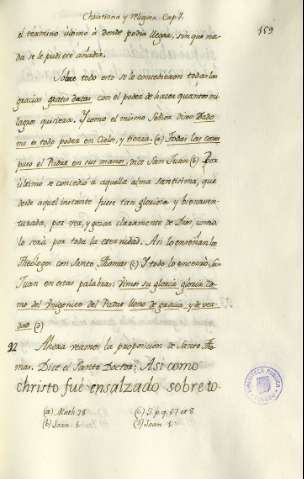 Christiano y Magno. Cap. 7.
159
el termino ultimo à donde podia llegar, sin que na-
da se le pudiese añadir.
Sobre todo esto se le concedieron todas las
gracias gratis datas con el poder de hacer quantos mi-
lagros quisiera. Y como el mismo Señor dijo: Dado
me es todo poder en Cielo, y tierra. (a) Todas las cosas
puso el Padre en sus manos, dice San Juan (b) Por
ultimo se concedió à aquella alma santissima, que
desde aquel instante fuese tan gloriosa y bienaven-
turada, por ver, y gozar claramente de Dios, como
lo seria por toda la eternidad. Asi lo enseñan los
Theologos con Santo Thomas (c) Y todo lo encerrò San
Juan en estas palabras: Vimos su gloria, gloria co-
mo del Unigenito del Padre lleno de gracia, y de ver-
dad. (d)
92 Ahora veamos la proposicion de Santo Tho-
mas. Dice el Santo Doctor: Asi como
christo fué ensalzado sobre to-
(a) Math. 28
(c) 3. p. q. 7. et 8.
(b) Joan.
(d) Joan. 1.